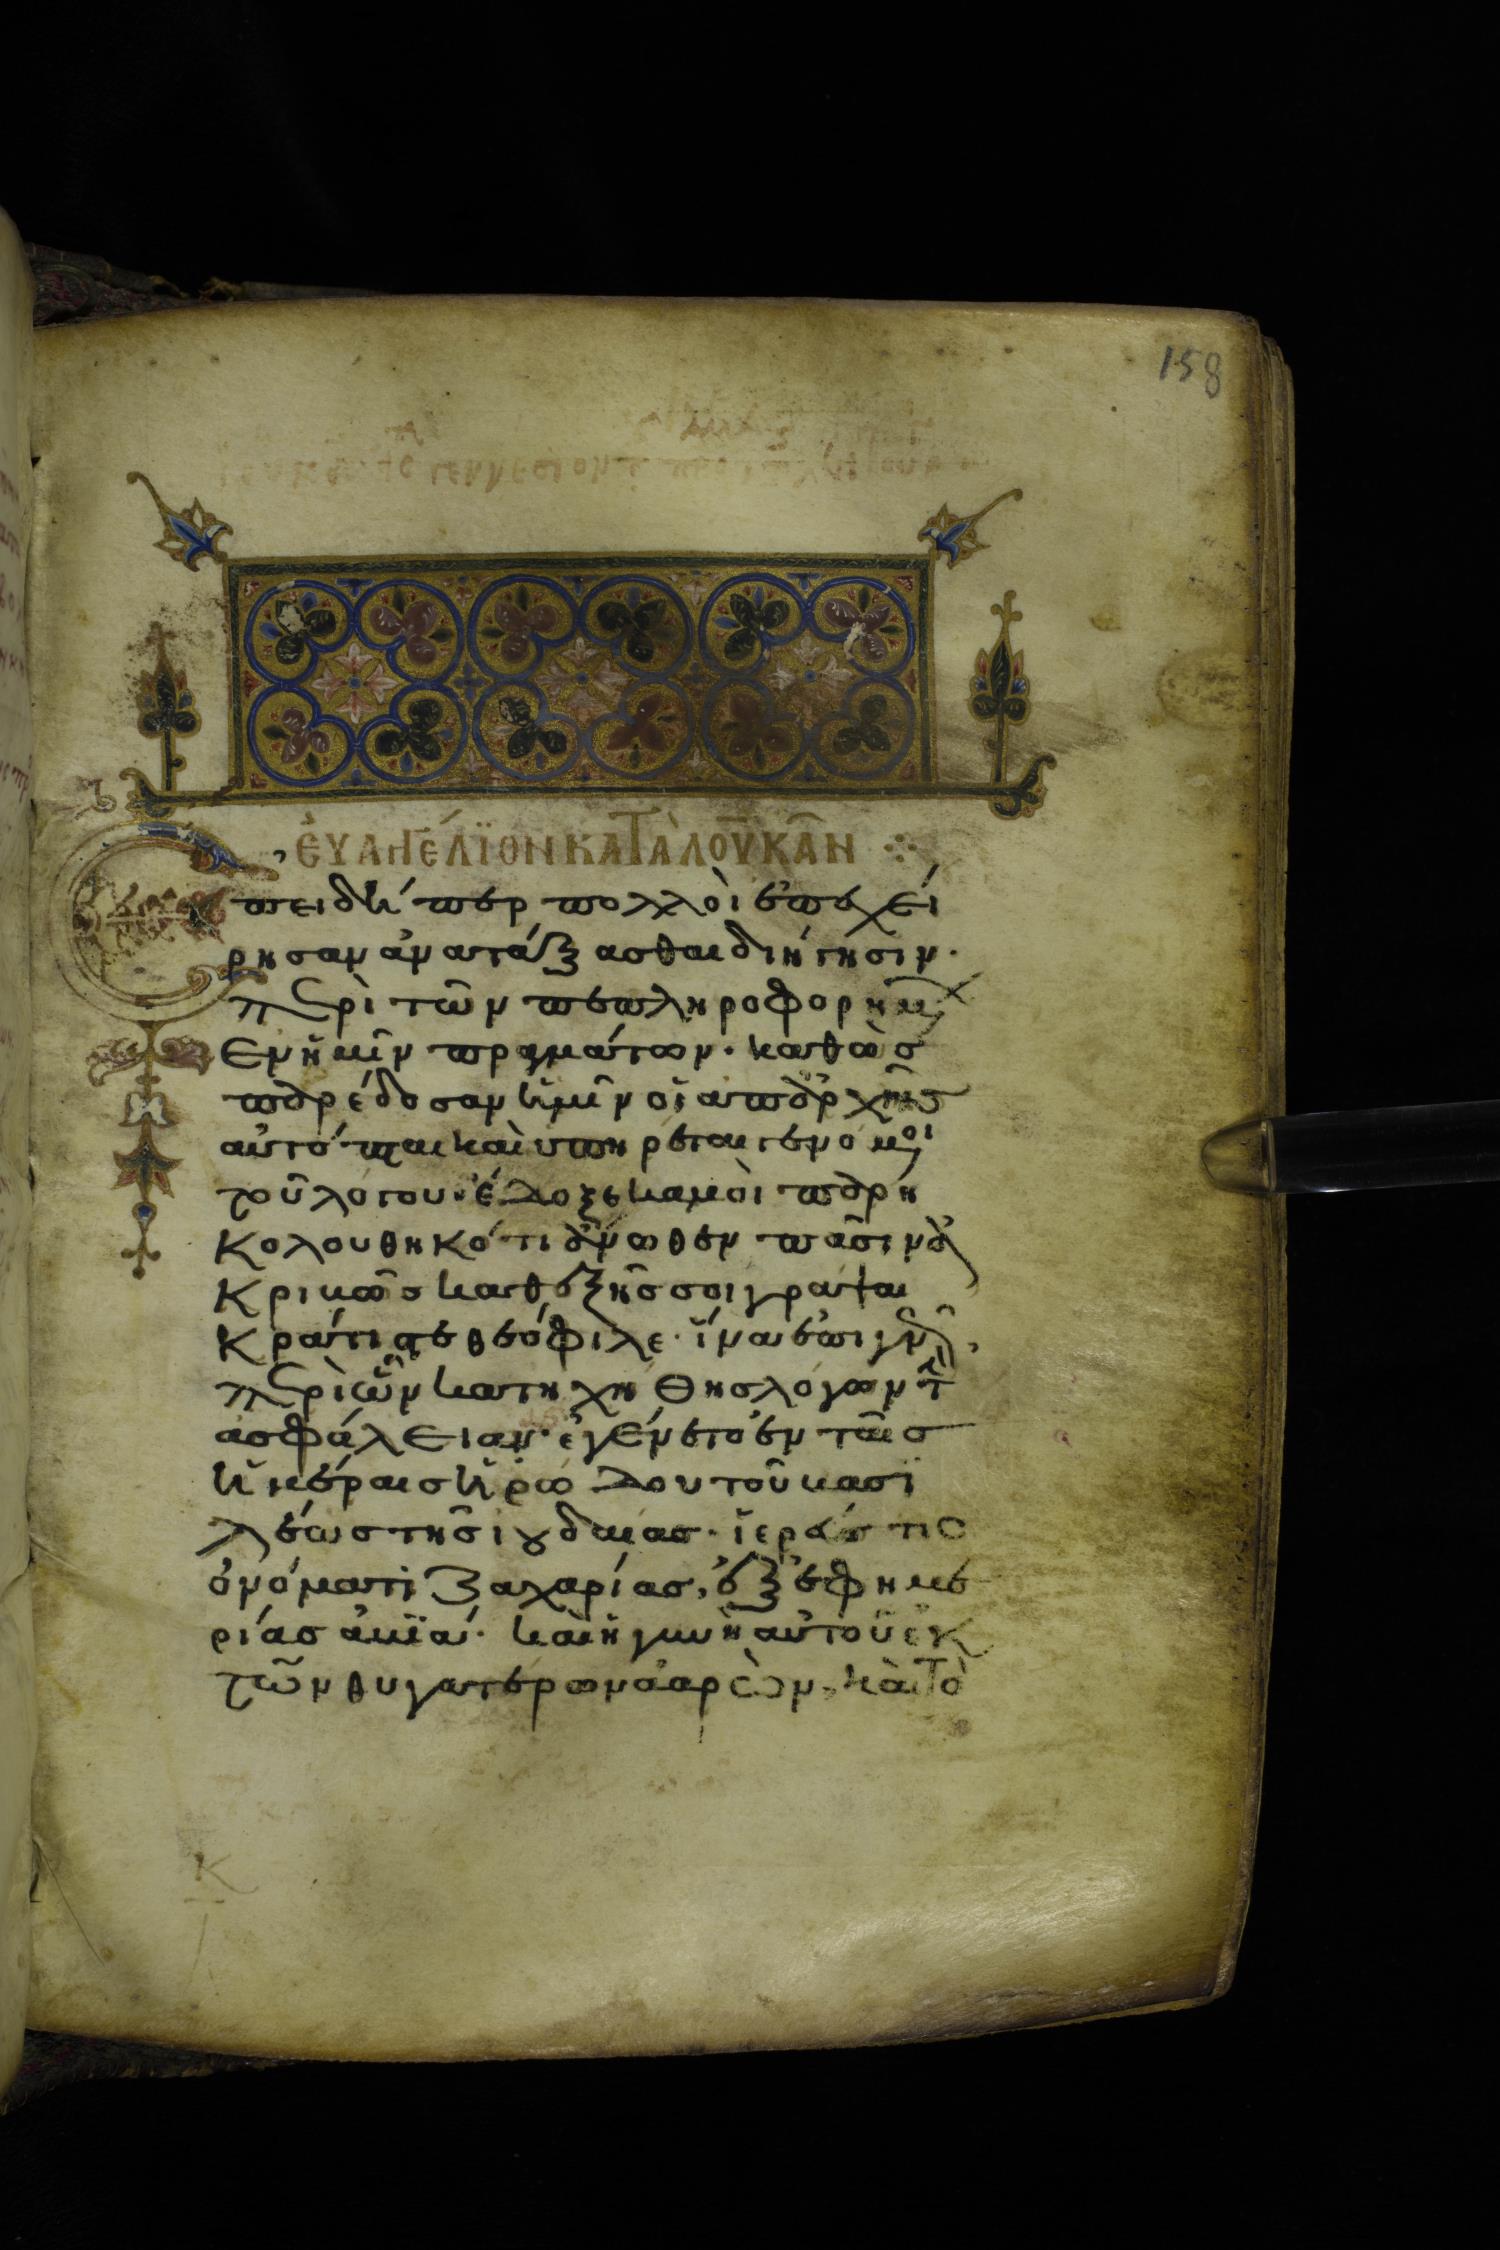 158
ἐυαγγέλϊον κατὰ λουκᾶν
Επειδήπερ πολλοὶ ἐπεχεί
ρησαν ἀναταξασθαι διήγησιν·
περὶ τῶν πεπληροφορημ
ἐν ἡμῖν πραγμάτων· καθὼσ
παρέδοσαν ἡμῖν οἱ απαρχῆς
αὐτόπται καὶ υπηρέται γενόμοι
τοῦ λόγου· ἔδοξε καμοὶ παρη
κολουθηκότι ἄνωθεν πᾶσιν ἀ
κριβῶσ καθεξῆσ σοι γράψαι
κράτιστε θεόφιλε· ἵνα ἐπιγνῶς,
περὶ ὧν κατηχήθησ λόγων τὴν
ασφάλειαν· ἐγένετο ἐν ταῖσ
ἡμέραισ ἡρώδου τοῦ βασϊ
λέωσ τῆσ ιουδαίασ· ἱερεύσ τισ
ὀνόματι ζαχαρίασ, ἐξ ἐφημε
ρίασ ἀβϊά· καὶ ἡ γυνὴ αὐτοῦ ἐκ
τῶν θυγατέρων ἀαρὼν, καὶ τὸ
κ